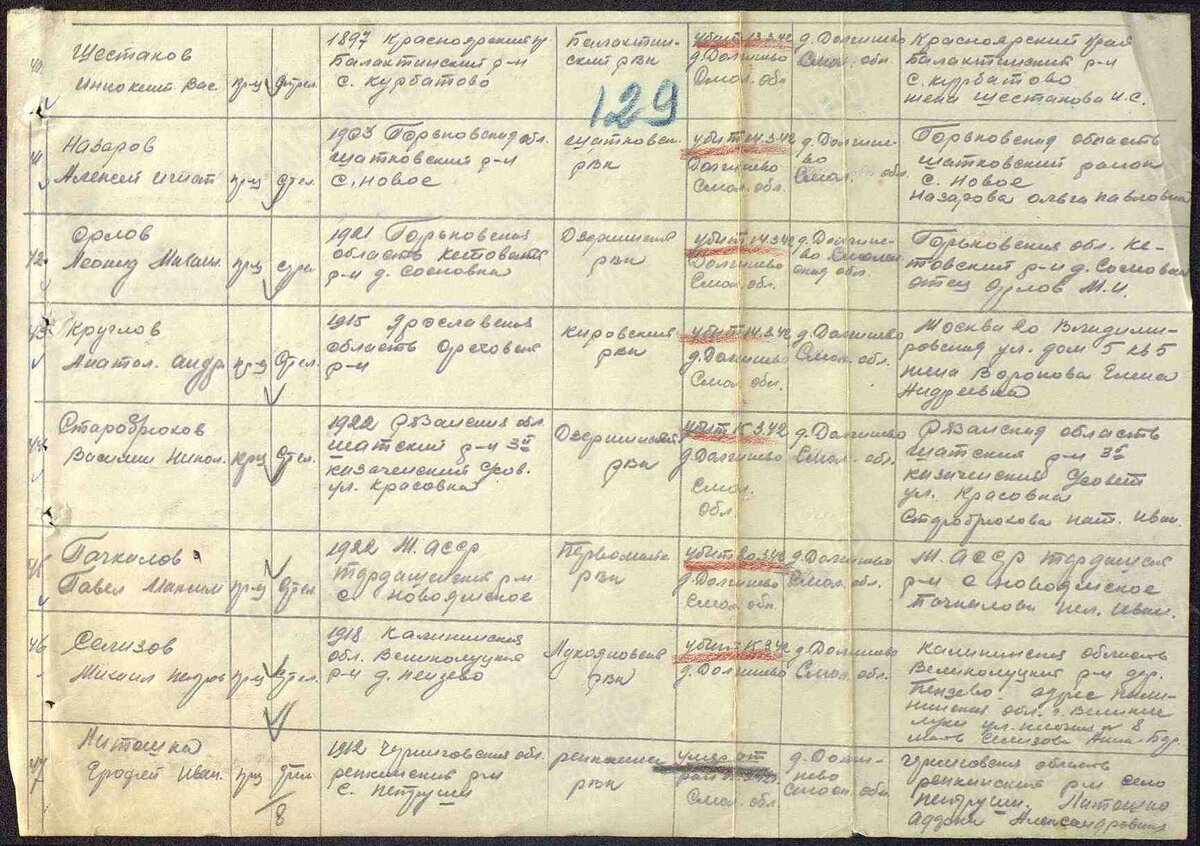 40 Шестаков
Иннокент Вас
кр-ц
стрел.
1897 Красноярский кр
Балахтинский р-н
с. Курбатово
Балахтин-
ский рвк
убит 13.3.42
д. Долгинево
Смол. обл
д. Долгинево
Смол. обл
Красноярский край
Балахтинский р-н
с. Курбатово
жена Шестакова И.С.
129
41 Назаров
Алексей Игнат
кр-ц
стрел.
1903 Горьковская обл.
Шатковский р-н
с. Новое
Шатковск.
рвк
убит 14.3.42
Долгинево
Смол. обл.
д. Долгине-
во
Смол. обл.
Горьковская область
Шатковский район
с. Новое
Назарова Ольга Павловна
42 Орлов
Леонид Михаил
кр-ц
стрел
1921 Горьковская
область Кстовский
р-н д. Сосновка
Дзержинский
рвк
убит 14.3.42
Долгинево
Смол. обл.
д. Долгине-
во Смолен
ская обл.
Горьковская обл. Кс-
товский р-н д. Сосновка
отец Орлов М.И.
43 Круглов
Анатол. Андр
кр-ц
стрел.
1915 Ярославская
область
р-н
Кировский
рвк
убит 14.3.42
д. Долгинево
Смол. обл.
д. Долгинево
Смол. обл.
Москва 20 Владими-
ровская ул. дом 5 кв 5
жена Воронова Елена
Андреевна
44 Старобрюхов
Василий Никол.
кр-ц
стрел.
1922 Рязанская обл.
Шатский р-н 3й
казаченский
ул. Красовка
Дзержинский
рвк
убит 15.3.42
д. Долгинево
Смол.
обл.
д. Долгинево
Смол. обл.
Рязанская область
Шатский р-н 3й
казаченский
ул. Красовка
Старобрюхова Нат. Иван.
45 Пачкалов
Павел Максим
кр-ц
стрел.
1922 М. АССР
р-н
Первомайск
рвк
убит 20.3.42
д. Долгинево
Смол. обл
д. Долгинево
Смол. обл.
М. АССР
р-н с
Пачкалова Пел. Иван.
46 Селизов
Михаил Петров
кр-ц
стрел.
1918 Калининская
обл. Великолукский
р-н д. Пензево
рвк
убит 15.3.42
д. Долгинево
д. Долгинево
Смол. обл.
Калининская область
Великолукский р-н дер.
Пензево адрес Кали-
нинская обл. г. Великие
луки ул.
мать Селизова Анна
47 Литошка
Ерофей Иван.
кр-ц
стрел
8
1912 Черниговская обл.
Репкинский р-н
с. Петруши
рвк
умер от
ран
Смол. обл.
д. Долги-
нево
Смол. обл.
Черниговская область
Репкинский р-н село
Петруши. Литошко
Александровна